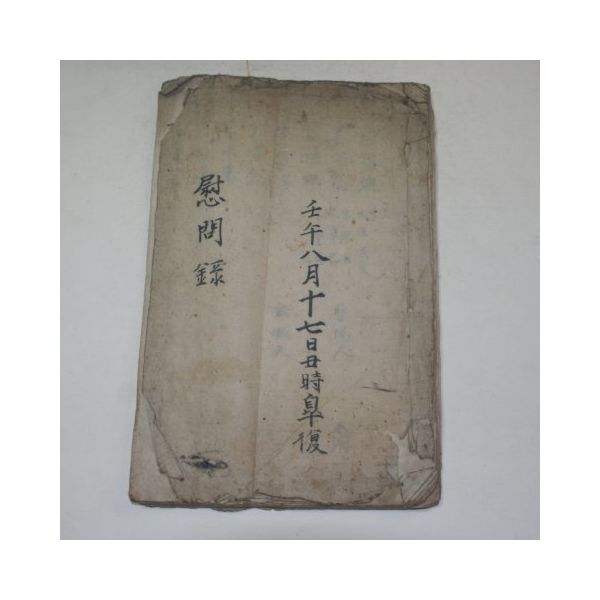 壬午八月十七日丑時皐復
慰問錄